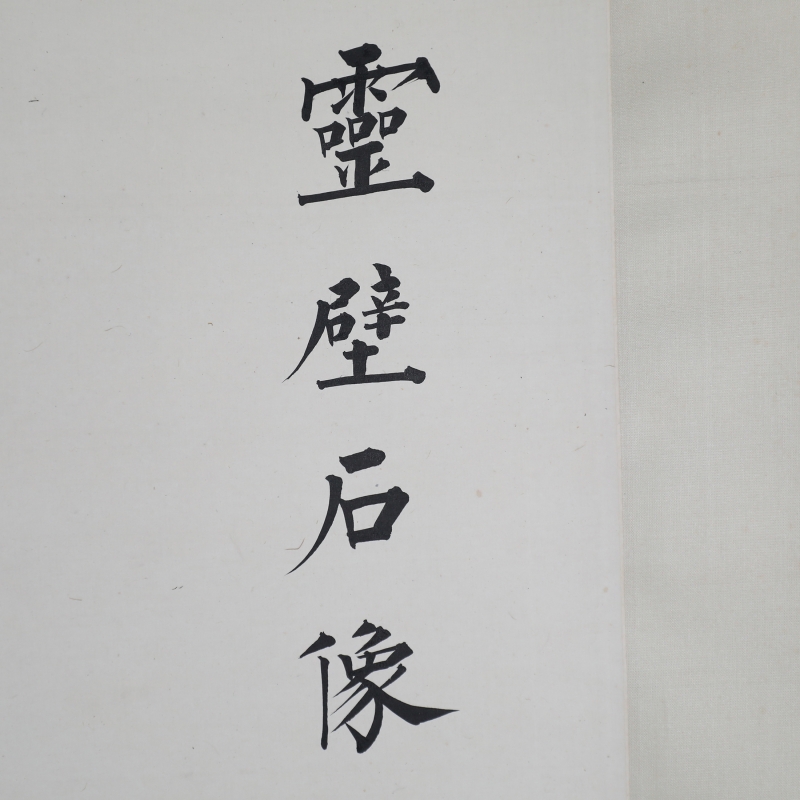 靈壁石像